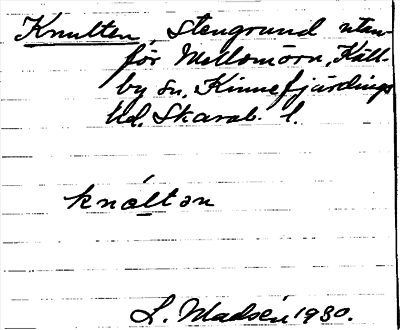 Knulten, stengrund utan-
för Mellomörn, Käll-
by sn, Kinnefjärdings
hd, Skarab. l.
knòltən
L. Madsén 1930.